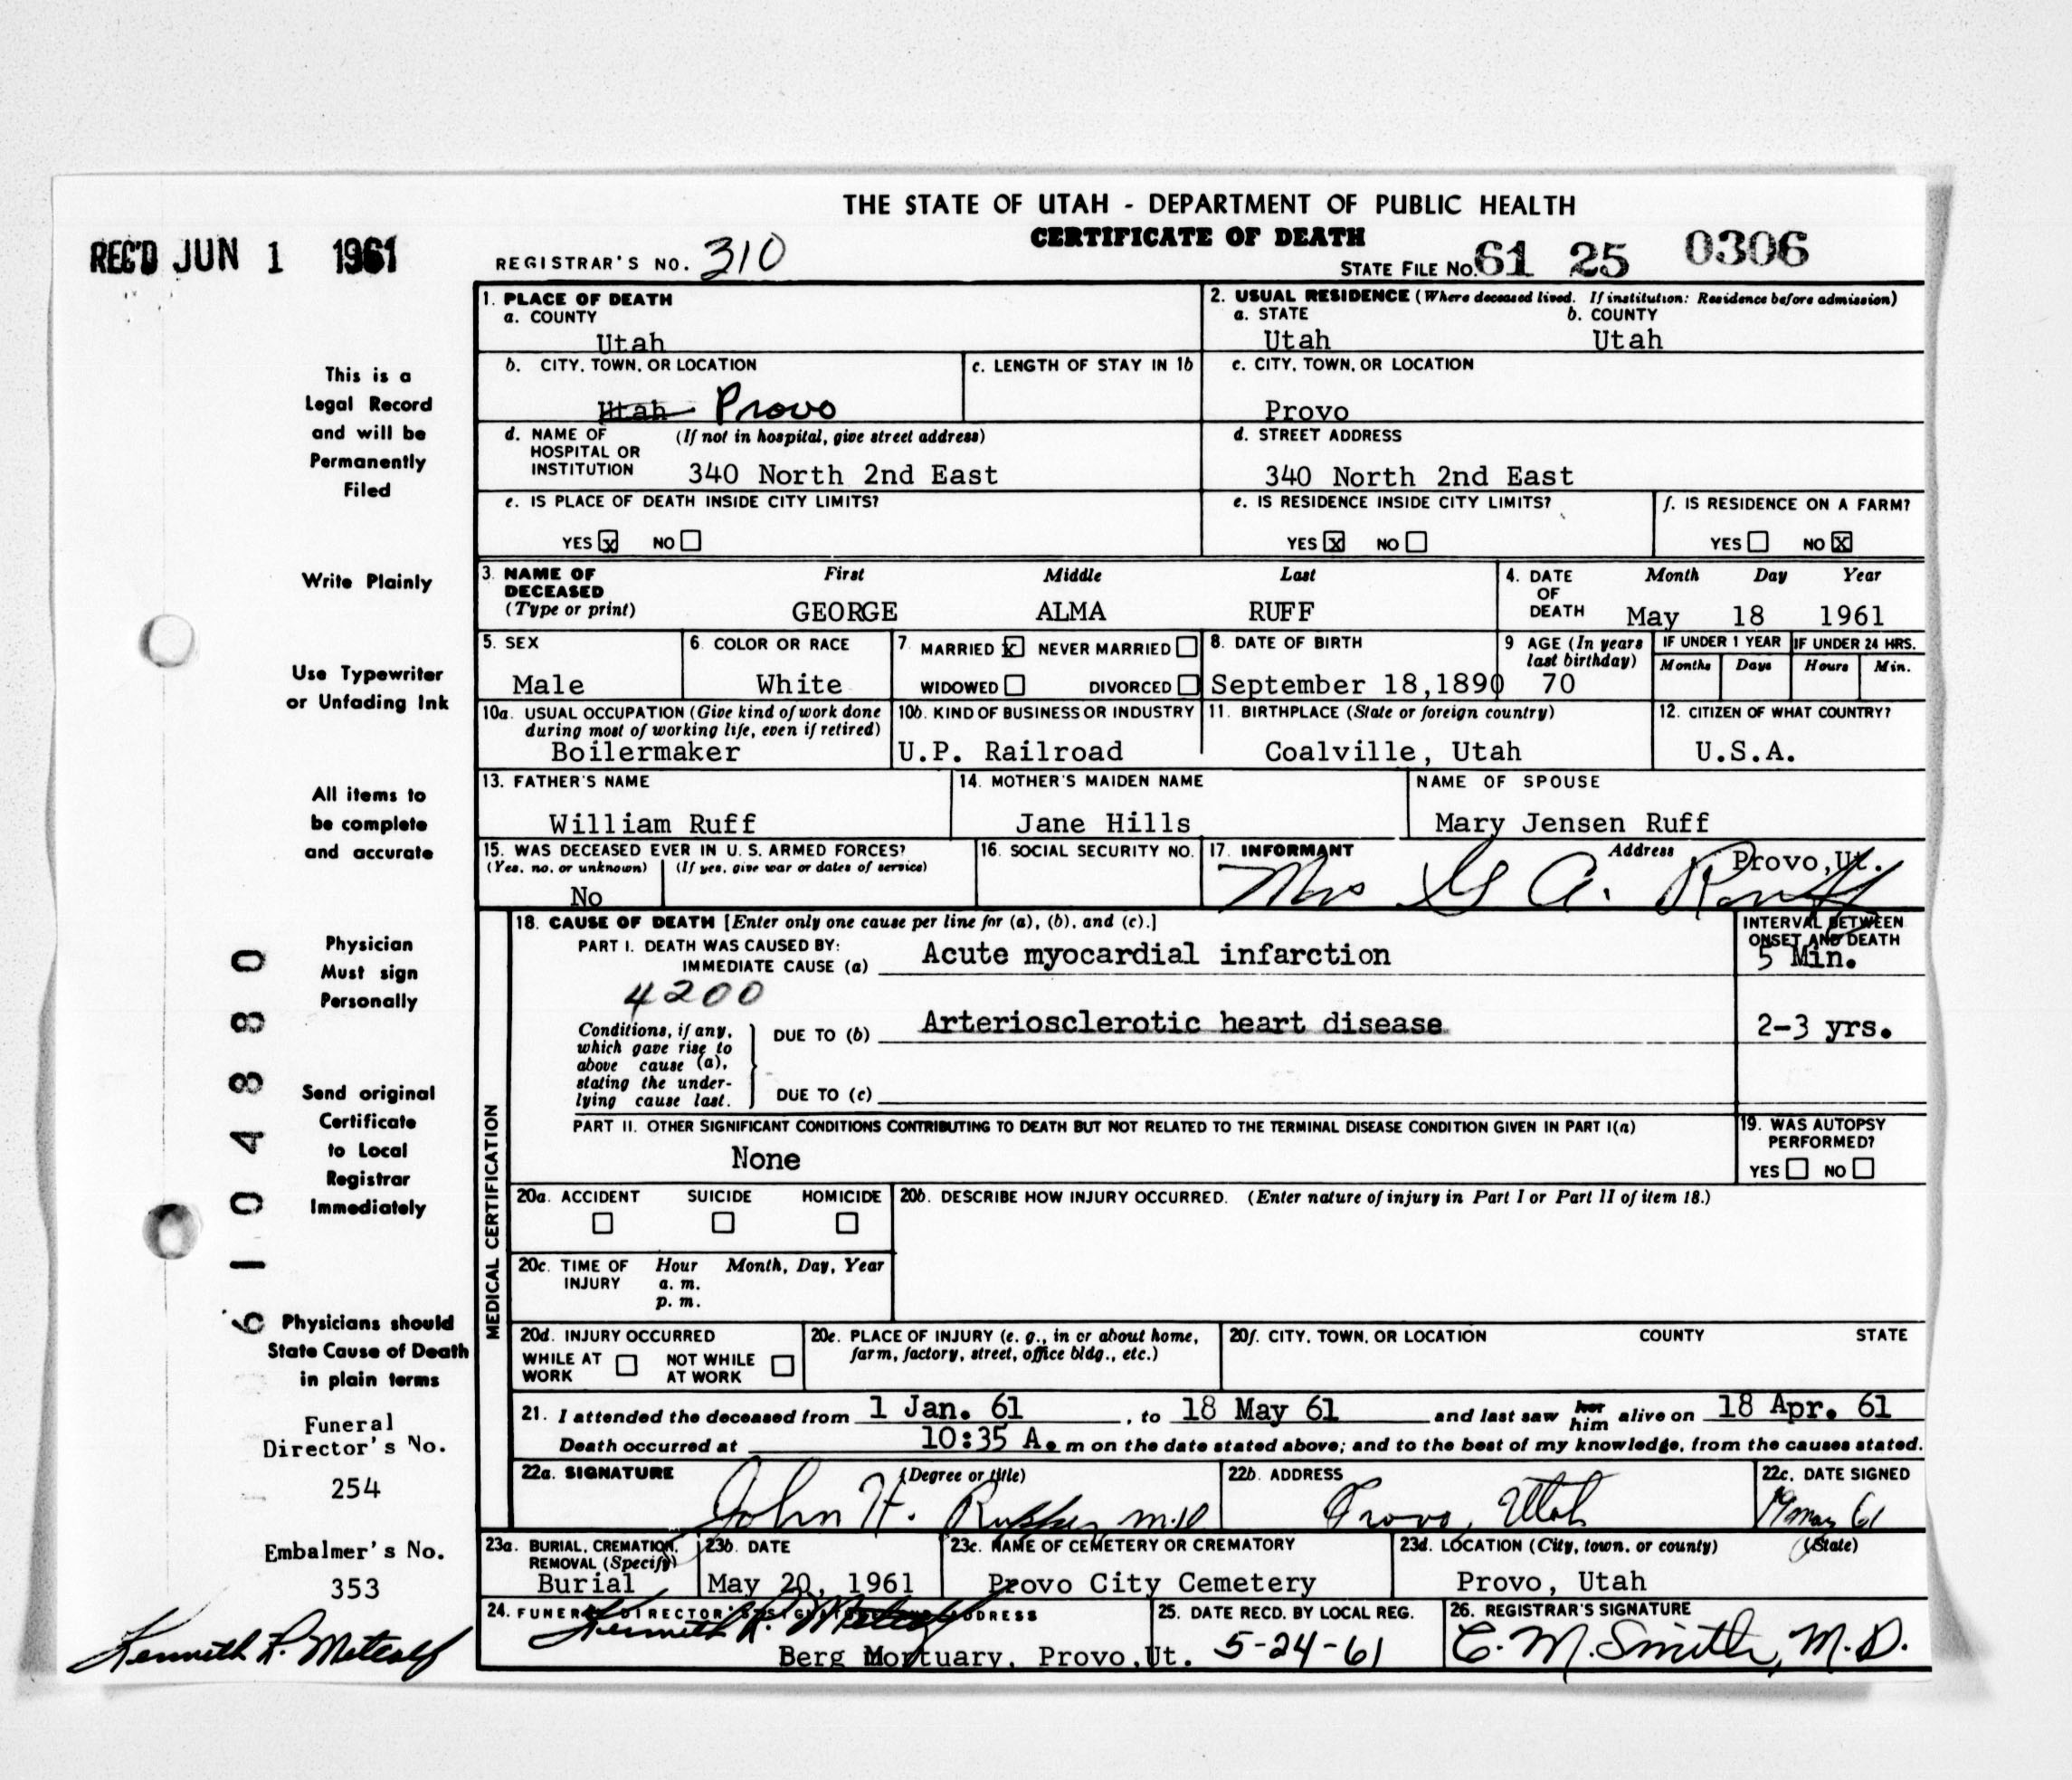 THE STATE OF UTAH - DEPARTMENT OF PUBLIC HEALTH
CERTIFICATE OF DEATH
REC'D JUN 1 1961
REGISTRAR'S NO. 310
STATE FILE NO. 61 25 0306
1. PLACE OF DEATH
a. COUNTY
Utah
2. USUAL RESIDENCE (Where deceased lived. If institution: Residence before admission)
a. STATE b. COUNTY
Utah Utah
b. CITY, TOWN, OR LOCATION
Utah Provo
c. LENGTH OF STAY IN 1b
c. CITY, TOWN, OR LOCATION
Provo
d. NAME OF (If not in hospital, give street address)
HOSPITAL OR
INSTITUTION 340 North 2nd East
d. STREET ADDRESS
340 North 2nd East
e. IS PLACE OF DEATH INSIDE CITY LIMITS?
YES x NO
e. IS RESIDENCE INSIDE CITY LIMITS?
YES X NO
f. IS RESIDENCE ON A FARM?
YES NO X
3. NAME OF First Middle Last
DECEASED
(Type or print) GEORGE ALMA RUFF
4. DATE Month Day Year
OF
DEATH May 18 1961
5. SEX
Male
6. COLOR OR RACE
White
7. MARRIED x NEVER MARRIED
WIDOWED DIVORCED
8. DATE OF BIRTH
September 18,1890
9 AGE (In years
last birthday)
70
IF UNDER 1 YEAR IF UNDER 24 HRS.
Months Days Hours Min.
10a. USUAL OCCUPATION (Give kind of work done
during most of working life, even if retired)
Boilermaker
10b. KIND OF BUSINESS OR INDUSTRY
U.P. Railroad
11. BIRTHPLACE (State or foreign country)
Coalville, Utah
12. CITIZEN OF WHAT COUNTRY?
U.S.A.
13. FATHER'S NAME
William Ruff
14. MOTHER'S MAIDEN NAME
Jane Hills
NAME OF SPOUSE
Mary Jensen Ruff
15. WAS DECEASED EVER IN U. S. ARMED FORCES?
(Yes, no, or unknown) (If yes, give war or dates of service)
No
16. SOCIAL SECURITY NO.
17. INFORMANT Address
Provo,Ut.
Mrs G A. Ruff
18. CAUSE OF DEATH [Enter only one cause per line for (a), (b), and (c).]
PART I. DEATH WAS CAUSED BY:
IMMEDIATE CAUSE (a) Acute myocardial infarction
INTERVAL BETWEEN
ONSET AND DEATH
5 Min.
4200
Conditions, if any,
which gave rise to
above cause (a),
stating the under-
lying cause last.
DUE TO (b) Arteriosclerotic heart disease
2-3 yrs.
DUE TO (c)
PART II. OTHER SIGNIFICANT CONDITIONS CONTRIBUTING TO DEATH BUT NOT RELATED TO THE TERMINAL DISEASE CONDITION GIVEN IN PART I(a)
None
19. WAS AUTOPSY
PERFORMED?
YES NO
MEDICAL CERTIFICATION
20a. ACCIDENT SUICIDE HOMICIDE
20b. DESCRIBE HOW INJURY OCCURRED. (Enter nature of injury in Part I or Part II of item 18.)
20c. TIME OF Hour Month, Day, Year
INJURY a. m.
p. m.
20d. INJURY OCCURRED
WHILE AT NOT WHILE
WORK AT WORK
20e. PLACE OF INJURY (e. g., in or about home,
farm, factory, street, office bldg., etc.)
20f. CITY, TOWN, OR LOCATION COUNTY STATE
21. I attended the deceased from 1 Jan. 61, to 18 May 61 and last saw her him alive on 18 Apr. 61
Death occurred at 10:35 A. m on the date stated above; and to the best of my knowledge, from the causes stated.
22a. SIGNATURE (Degree or title)
John H. M.D
22b. ADDRESS
Provo, Utah
22c. DATE SIGNED
19 May 61
23a. BURIAL, CREMATION,
REMOVAL (Specify)
Burial
23b. DATE
May 20, 1961
23c. NAME OF CEMETERY OR CREMATORY
Provo City Cemetery
23d. LOCATION (City, town, or county) (State)
Provo, Utah
24. FUNERAL DIRECTOR'S SIGNATURE ADDRESS
Kenneth R. Metcalf
Berg Mortuary, Provo,Ut.
25. DATE RECD. BY LOCAL REG.
5-24-61
26. REGISTRAR'S SIGNATURE
C. M. Smith, M.D.
This is a
Legal Record
and will be
Permanently
Filed
Write Plainly
Use Typewriter
or Unfading Ink
All items to
be complete
and accurate
Physician
Must sign
Personally
Send original
Certificate
to Local
Registrar
Immediately
Physicians should
State Cause of Death
in plain terms
Funeral
Director's No.
254
Embalmer's No.
353
Kenneth R. Metcalf
6104880